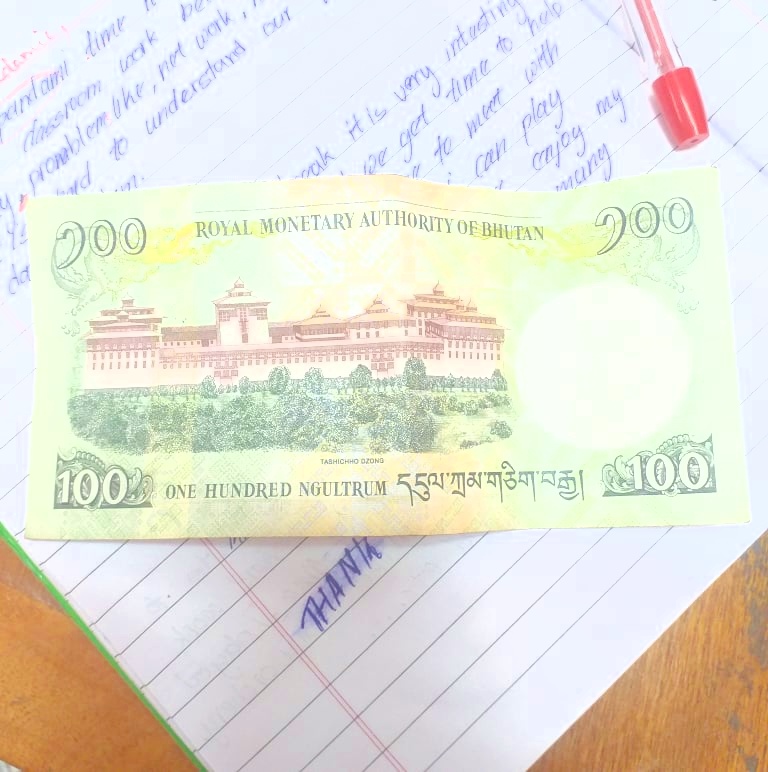 time
classroom work
problem like, net work,
to understand our
it is very intrsting
we get time to help
to meet with
can play
enjoy my
many
༡༠༠ ROYAL MONETARY AUTHORITY OF BHUTAN ༡༠༠
TASHICHHO DZONG
100 ONE HUNDRED NGULTRUM དངུལ་ཀྲམ་གཅིག་བརྒྱ། 100
THANK